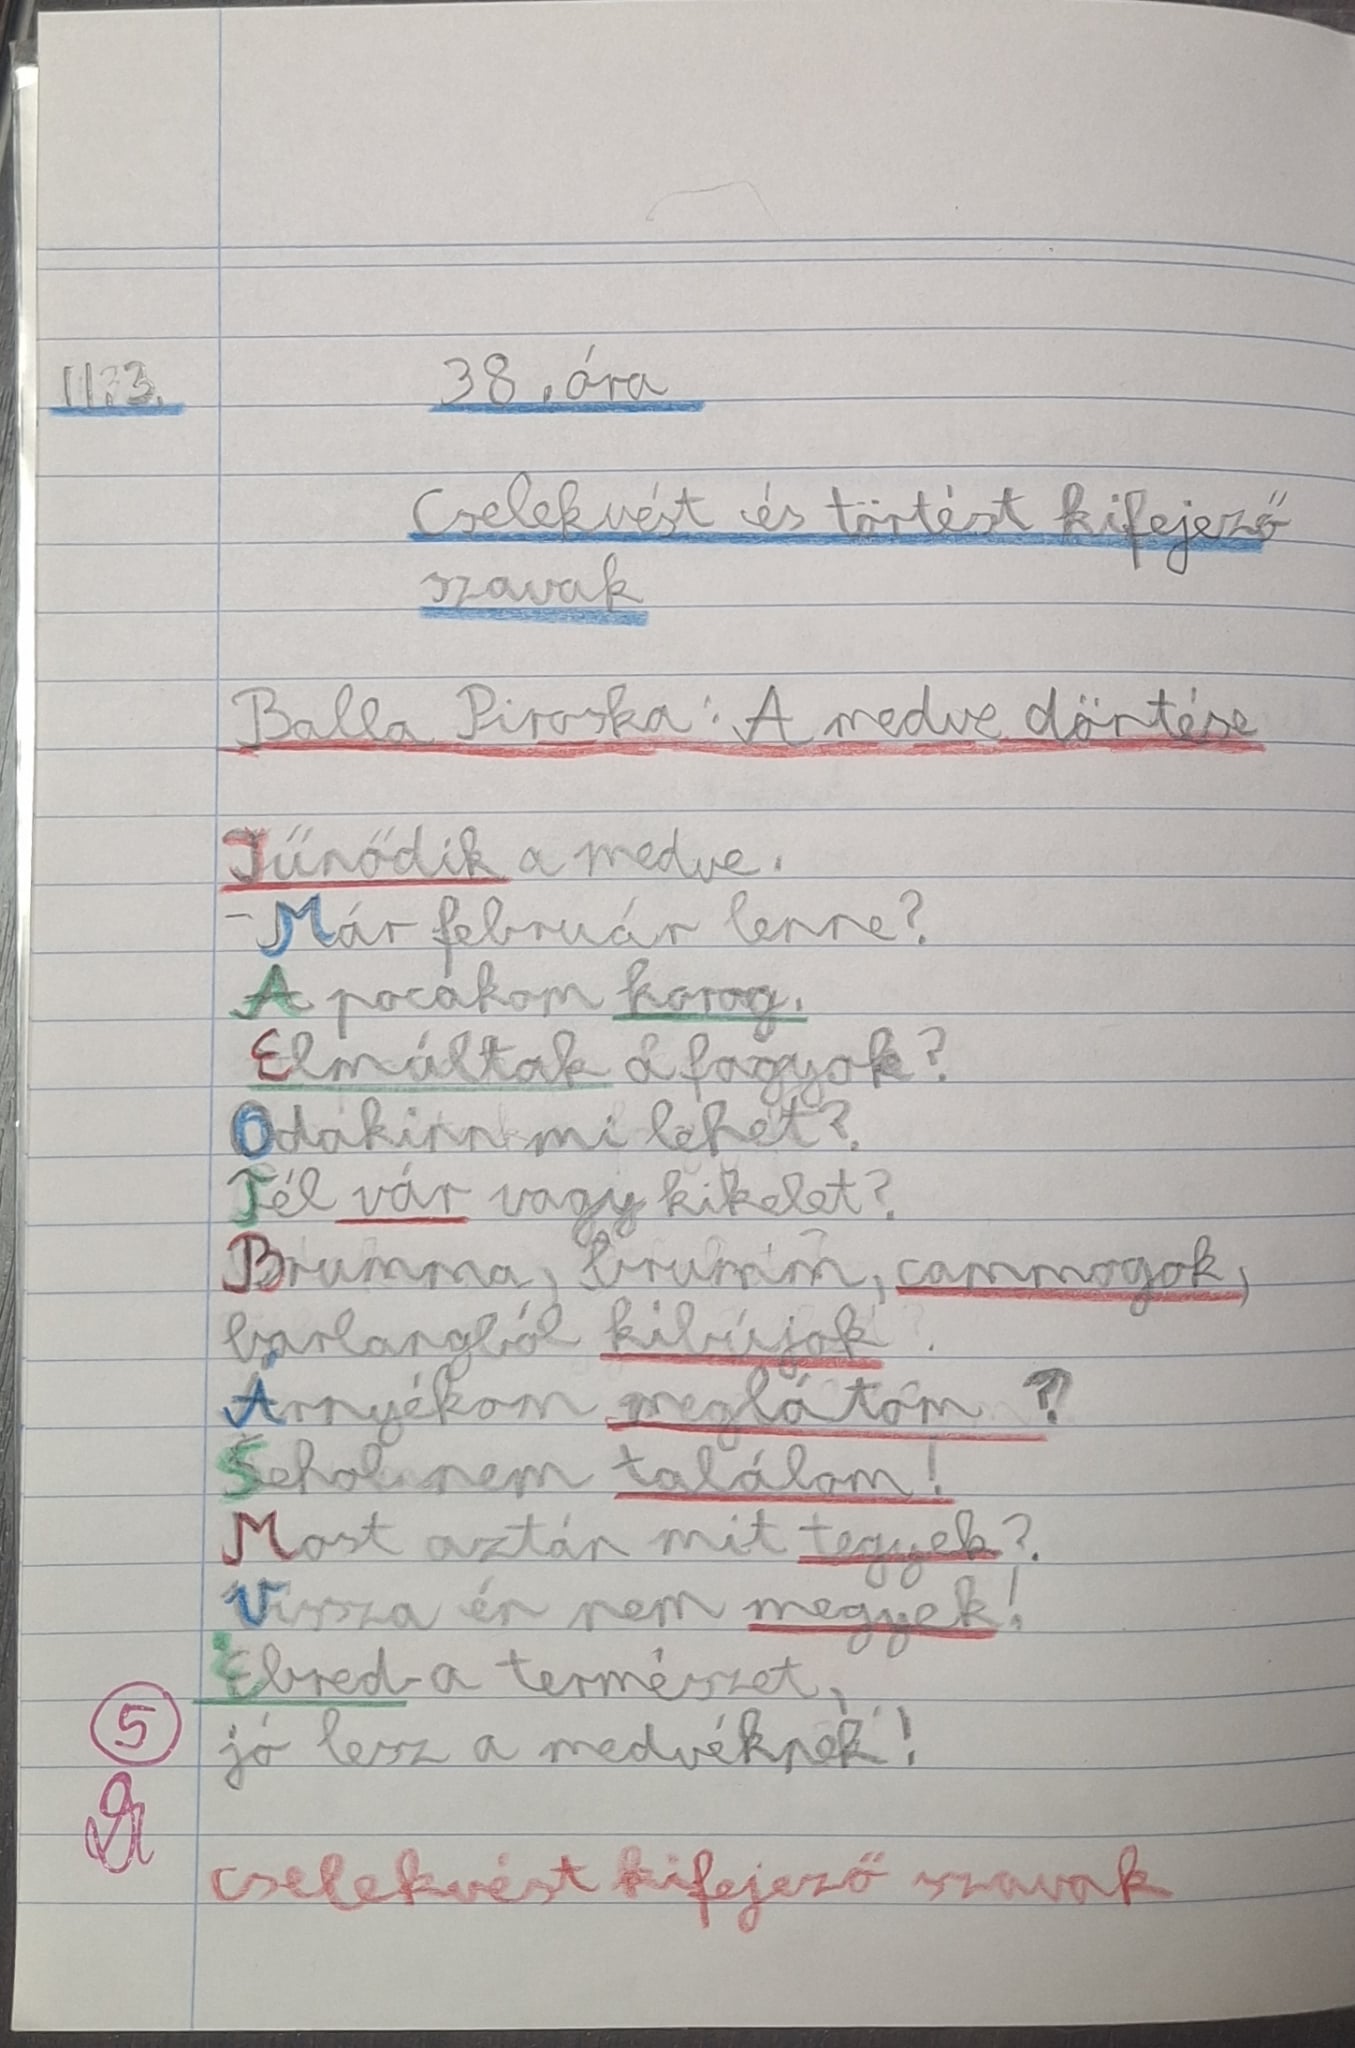 11.3.
38. óra
Cselekvést és törtést kifejező
szavak
Balla Piroska: A medve döntése
Tűnődik a medve.
- Már február lenne?
A pocakom korog.
Elmúltak a fagyok?
Odakinn mi lehet?
Tél vár vagy kikelet?
Brumma, brumm, cammogok,
barlangból kibújok.
Árnyékom meglátom?
Sehol nem találom!
Most aztán mit tegyek?
Vissza én nem megyek!
Ébred a természet,
jó lesz a medvéknek!
5
cselekvést kifejező szavak